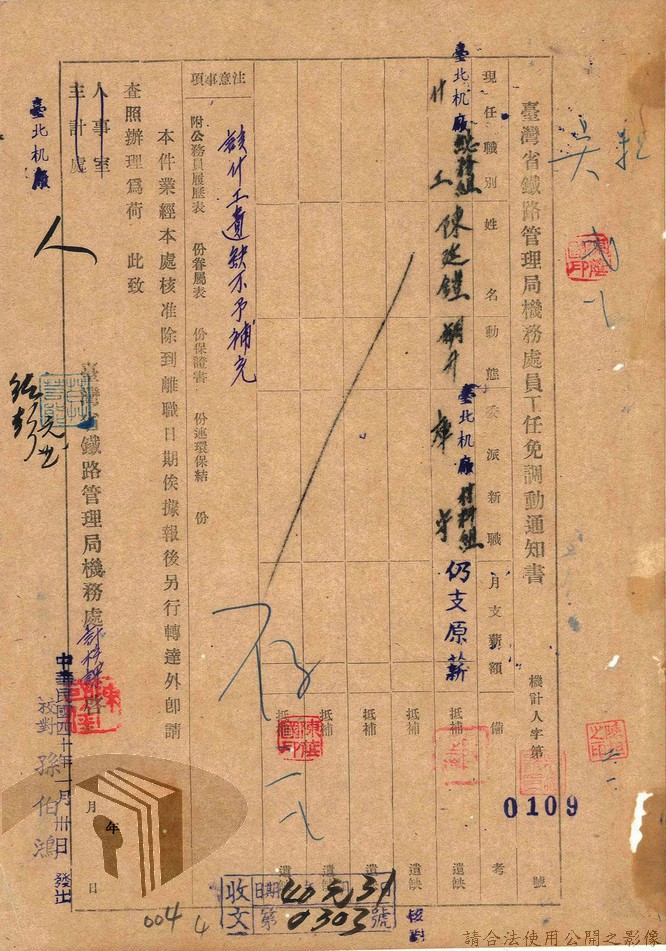 臺灣省鐵路管理局機務處員工任免調動通知書
機計人字第
0109
號
現任職別
姓名
動態
委派新職
月支薪額
備考
臺北机廠總務組
什工
陳延鏜
調升
臺北机廠材料組
庫守
仍支原薪
抵補
遺缺
抵補
遺缺
抵補
遺缺
抵補
遺缺
抵補
遺缺
存
注意事項
該什工遺缺不予補充
附公務員履歷表 份眷屬表 份保證書 份連環保結 份
本件業經本處核准除到離職日期俟據報後另行轉達外卽請
查照辦理爲荷 此致
人事室
主計處
臺北机廠
人
臺灣省鐵路管理局機務處
啓
中華民國四十年一月卅日 發出
年
月
日
校對
孫伯鴻
收文
日期
40元31
第
0303
號
004
4
請合法使用公開之影像